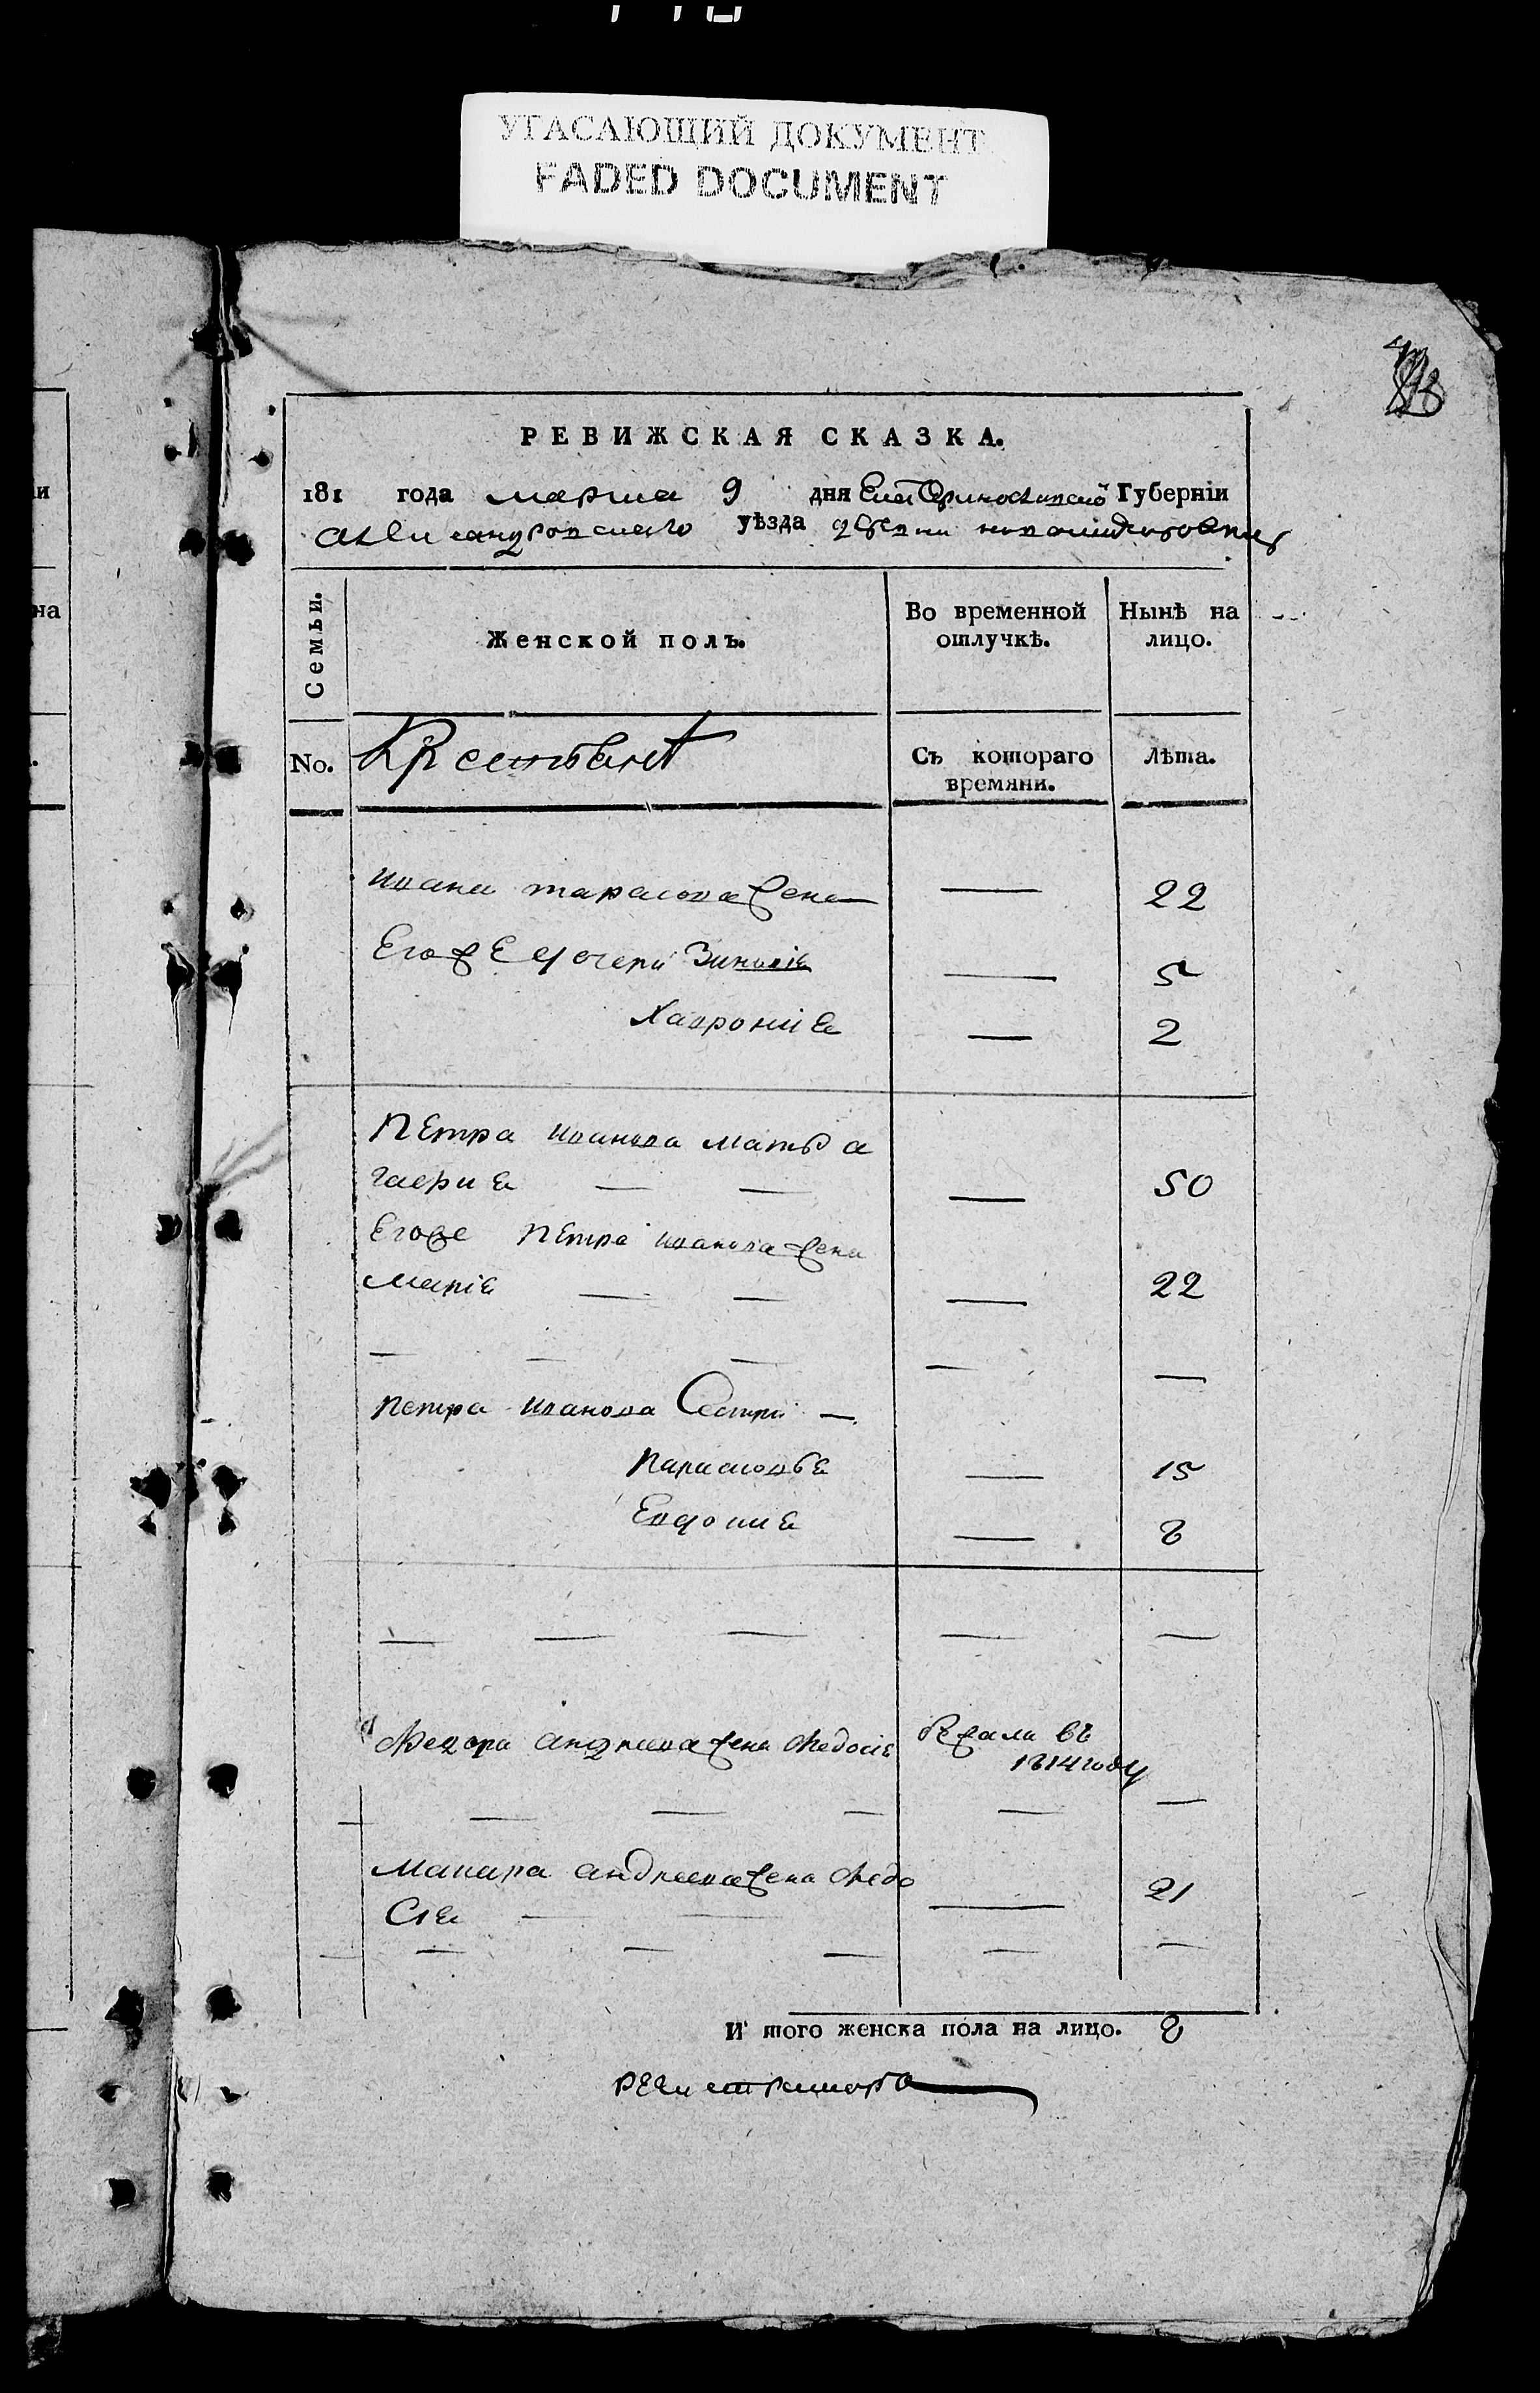 УГАСАЮЩИЙ ДОКУМЕНТ
FADED DOCUMENT
РЕВИЖСКАЯ СКАЗКА.
181 года марта 9 дня Екатеринославской Губерніи
александровскаго уѣзда деревни
Семьи.
Женской полъ.
Во временной отлучкѣ.
Нынѣ на лицо.
No.
Крестьянѣ
Съ котораго времяни.
Лѣта.
ивана тарасова жена — 22
Егоже дочери Зиновіе — 5
Хаврониѐ — 2
Петра иванова мать а
гафие — — — 50
Егоже Петра иванова жена
марие — — — 22
— — — — —
петра иванова Сестри —
Парасковье — 15
Евдокие — 8
— — — — —
Федора андреева жена Федосіе бежала въ
1814 году
— — — — —
Макара андреева жена Федо
Сие — — — 21
— — — — —
И того женска пола на лицо. 8